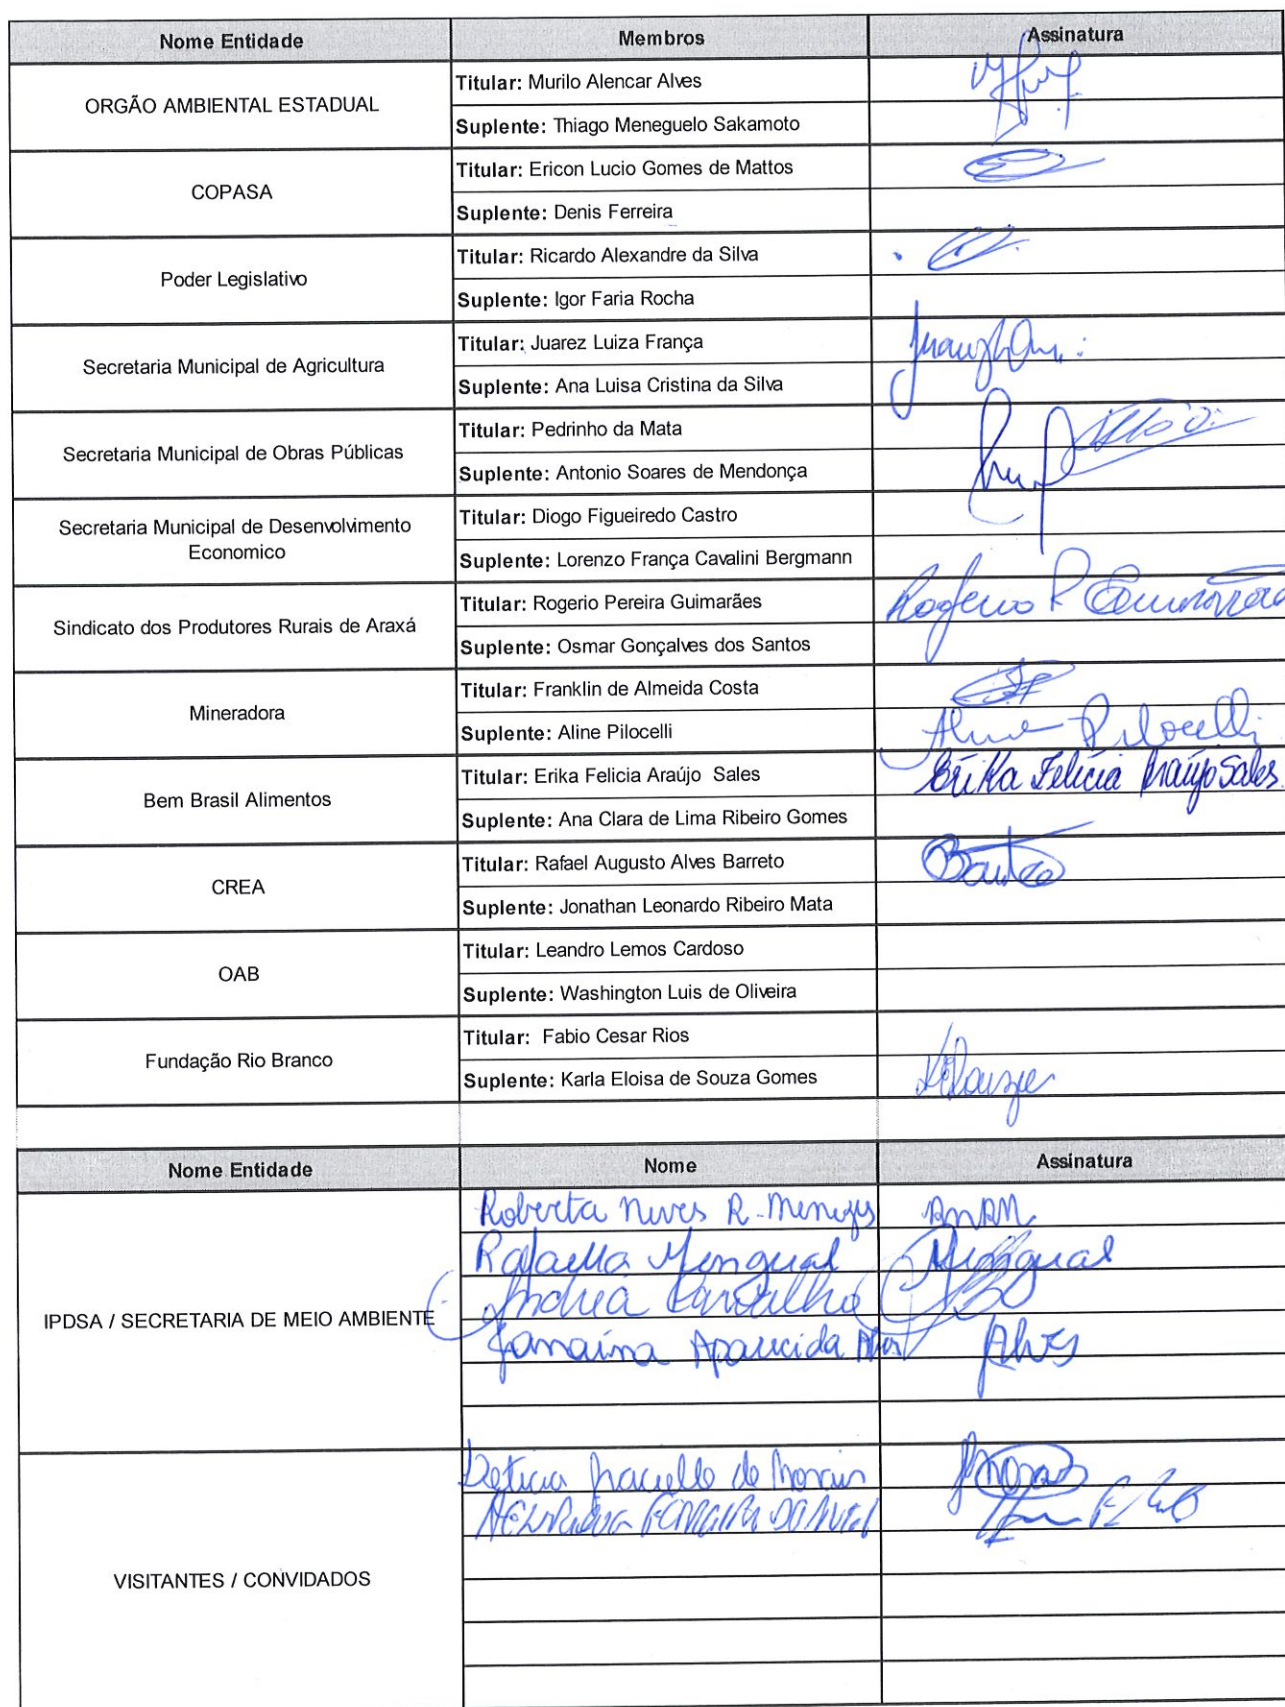 Nome Entidade Membros Assinatura
ORGÃO AMBIENTAL ESTADUAL
Titular: Murilo Alencar Alves
Suplente: Thiago Meneguelo Sakamoto
COPASA
Titular: Ericon Lucio Gomes de Mattos
Suplente: Denis Ferreira
Poder Legislativo
Titular: Ricardo Alexandre da Silva
Suplente: Igor Faria Rocha
Secretaria Municipal de Agricultura
Titular: Juarez Luiza França
Suplente: Ana Luisa Cristina da Silva
Secretaria Municipal de Obras Públicas
Titular: Pedrinho da Mata
Suplente: Antonio Soares de Mendonça
Secretaria Municipal de Desenvolvimento
Economico
Titular: Diogo Figueiredo Castro
Suplente: Lorenzo França Cavalini Bergmann
Sindicato dos Produtores Rurais de Araxá
Titular: Rogerio Pereira Guimarães Rogerio P Guimarães
Suplente: Osmar Gonçalves dos Santos
Mineradora
Titular: Franklin de Almeida Costa
Suplente: Aline Pilocelli Aline Pilocelli
Bem Brasil Alimentos
Titular: Erika Felicia Araújo Sales Erika Felícia Araújo Sales
Suplente: Ana Clara de Lima Ribeiro Gomes
CREA
Titular: Rafael Augusto Alves Barreto
Suplente: Jonathan Leonardo Ribeiro Mata
OAB
Titular: Leandro Lemos Cardoso
Suplente: Washington Luis de Oliveira
Fundação Rio Branco
Titular: Fabio Cesar Rios
Suplente: Karla Eloisa de Souza Gomes
Nome Entidade Nome Assinatura
IPDSA / SECRETARIA DE MEIO AMBIENTE
Roberta Neves R. Menezes RNRM
Rafaella Mengual Mengual
Andrea Carvalho
Janaína Aparecida Alves Alves
VISITANTES / CONVIDADOS
Leticia Gracielle de Morais Morais
FERREIRA